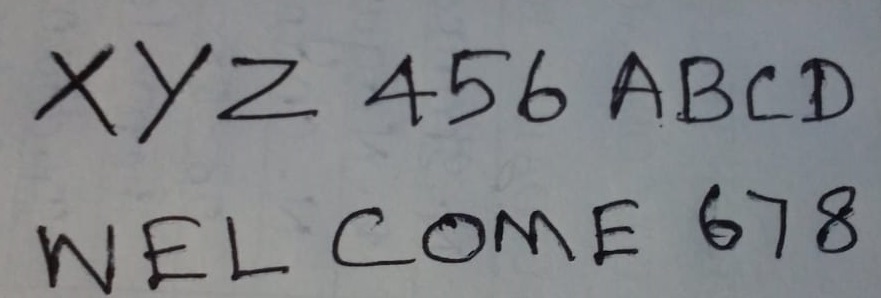 XYZ 456 ABCD
WELCOME 678